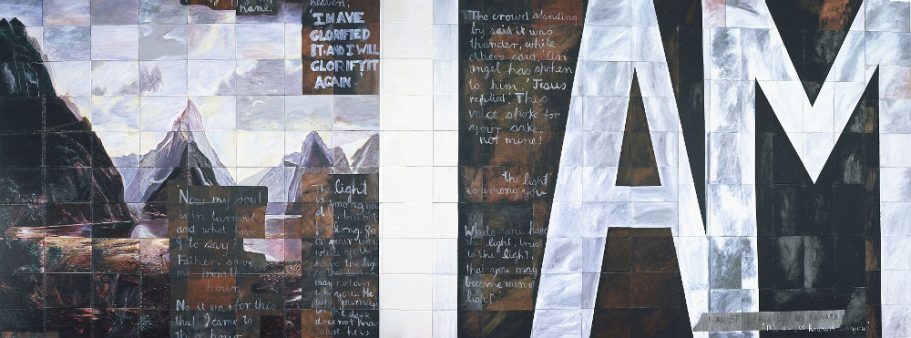 name!
heaven,
I HAVE
GLORIFIED
IT AND I WILL
GLORIFY IT
AGAIN
Now my soul
is in turmoil
and what am
I to say?
Father, save
me from
hour
No it was for this
that I came to
this hour
The light
is among you
but not
long. Go
on your way
while you
have the light
may not over
take you. He
who journeys
in the dark
does not know
where he is
The crowd standing
by said it was
thunder, while
others said, 'An
angel has spoken
to him.' Jesus
replied, 'This
voice spoke for
your sake,
not mine!
The light
is among you
While you have
the light, trust
to the light,
that you may
become men of
light'
AM